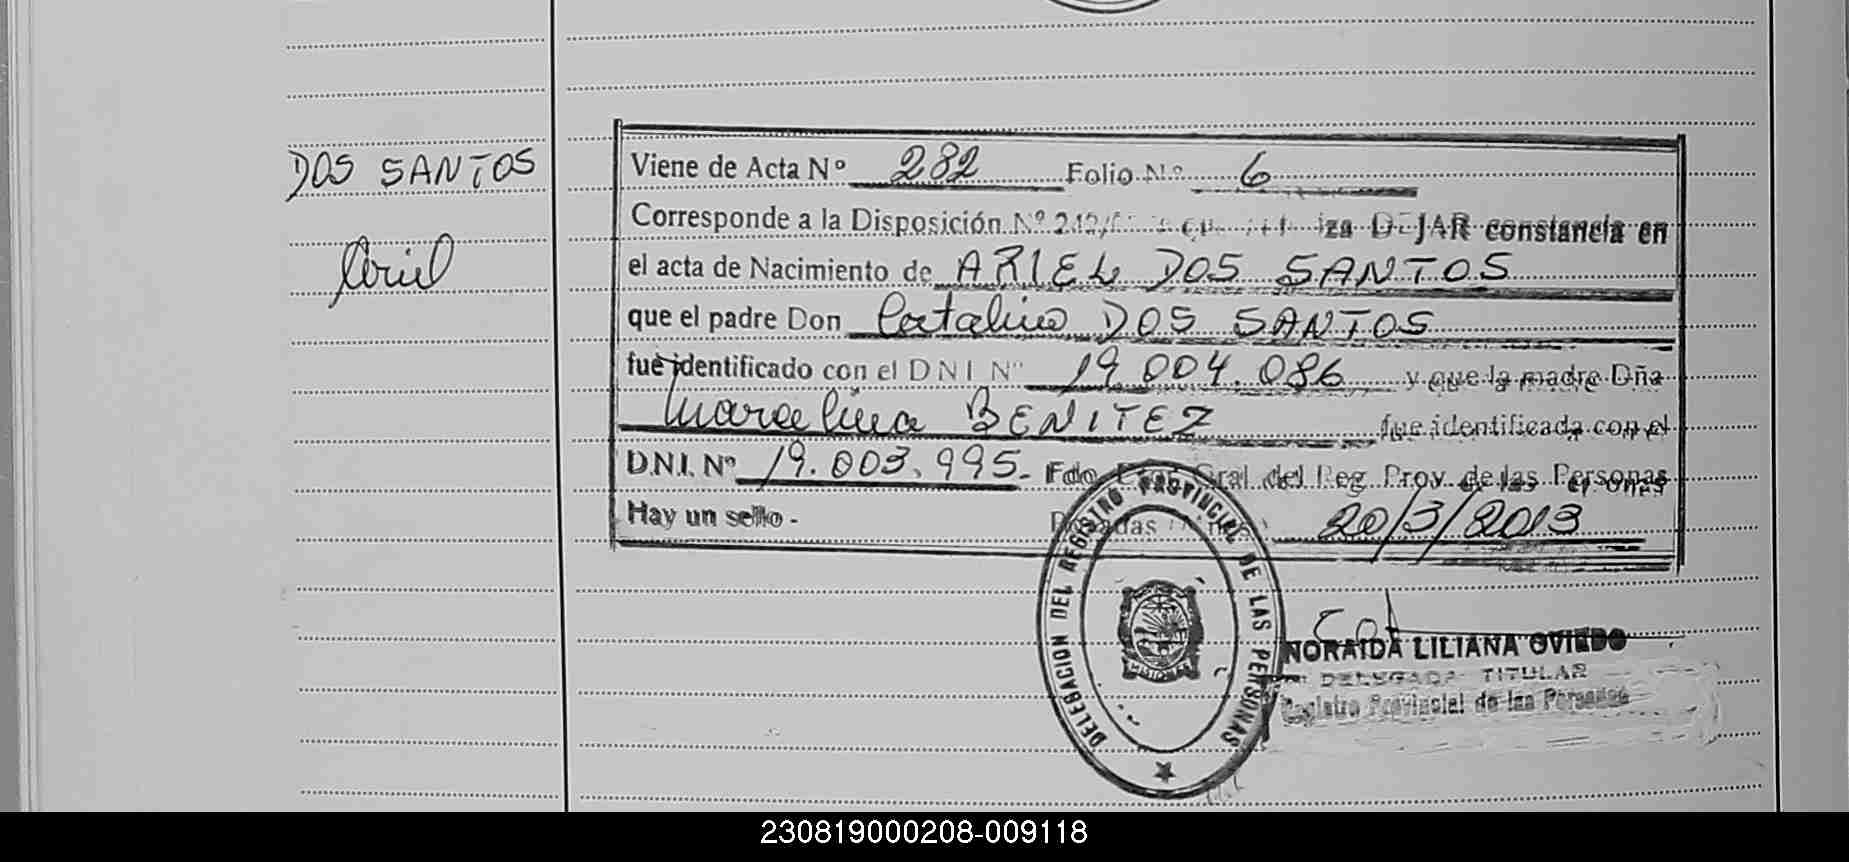 DOS SANTOS
Ariel
Viene de Acta Nº 282 Folio Nº 6
Corresponde a la Disposición Nº 242/ DEJAR constancia en
el acta de Nacimiento de ARIEL DOS SANTOS
que el padre Don Catalino DOS SANTOS
fué identificado con el D N I Nº 19.004.086 y que la madre Dña
Marcelina BENITEZ fue identificada con el
D.N.I. Nº 19.003.995- Fdo Gral del Reg Prov. de las Personas
Hay un sello - Posadas 20/3/2013
DELEGACION DEL REGISTRO PROVINCIAL DE LAS PERSONAS
MISIONES
NORAIDA LILIANA OVIEDO
DELEGADA TITULAR
Registro Provincial de las Personas
230819000208-009118